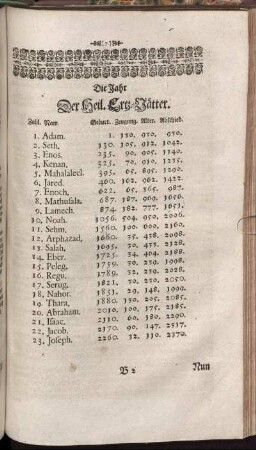 Die Jahr
Der Heil. Ertz-Vätter.
Zahl. Nam. Geburt. Zeugung. Alter. Abschied.
1. Adam. 1. 130. 930. 930.
2. Seth. 130. 105. 912. 1042.
3. Enos. 235. 90. 905. 1140.
4. Kenan. 325. 70. 910. 1235.
5. Mahalaleel. 395. 65. 895. 1290.
6. Jared. 460. 162. 962. 1422.
7. Enoch. 622. 65. 365. 987.
8. Mathusala. 687. 187. 969. 1656.
9. Lamech. 874. 182. 777. 1651.
10. Noah. 1056. 504. 950. 2006.
11. Sehm. 1560. 100. 600. 2160.
12. Arphazad, 1660. 35. 438. 2098.
13. Salah, 1695. 30. 433. 2128.
14. Eber. 1725. 34. 464. 2188.
15. Peleg. 1759. 30. 239. 1998.
16. Regu. 1789. 32. 239. 2028.
17. Serug. 1821. 30. 230. 2050.
18. Nahor. 1851. 29. 148. 1999.
19. Thara, 1880. 130. 205. 2085.
20. Abraham. 2010. 100. 175. 2185.
21. Isaac. 2110. 60. 180. 2290.
22. Jacob. 2170. 90. 147. 2317.
23. Joseph. 2260. 32. 110. 2370.
B 2 Nun